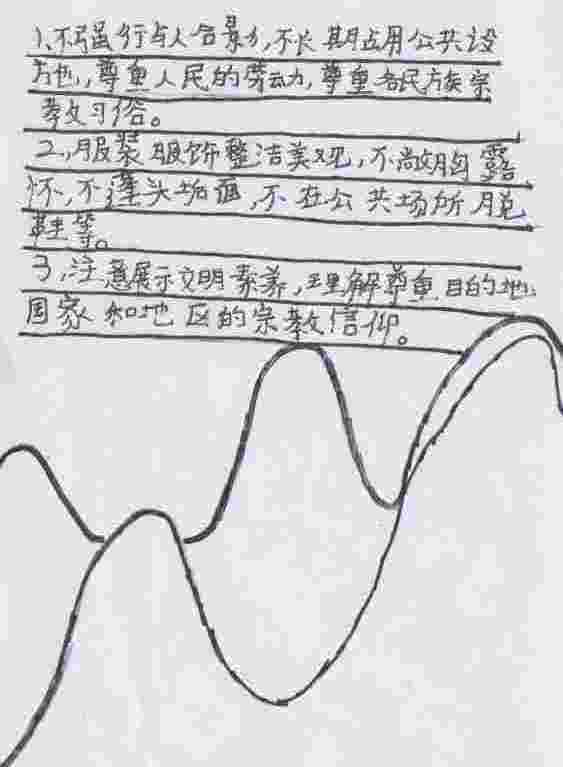 1、不强行与人合影,不长期占用公共设
施,尊重人民的劳动,尊重各民族宗
教习俗。
2、服装服饰整洁美观,不敞胸露
怀,不蓬头垢面,不在公共场所脱
鞋等。
3、注意展示文明素养,理解尊重目的地
国家和地区的宗教信仰。